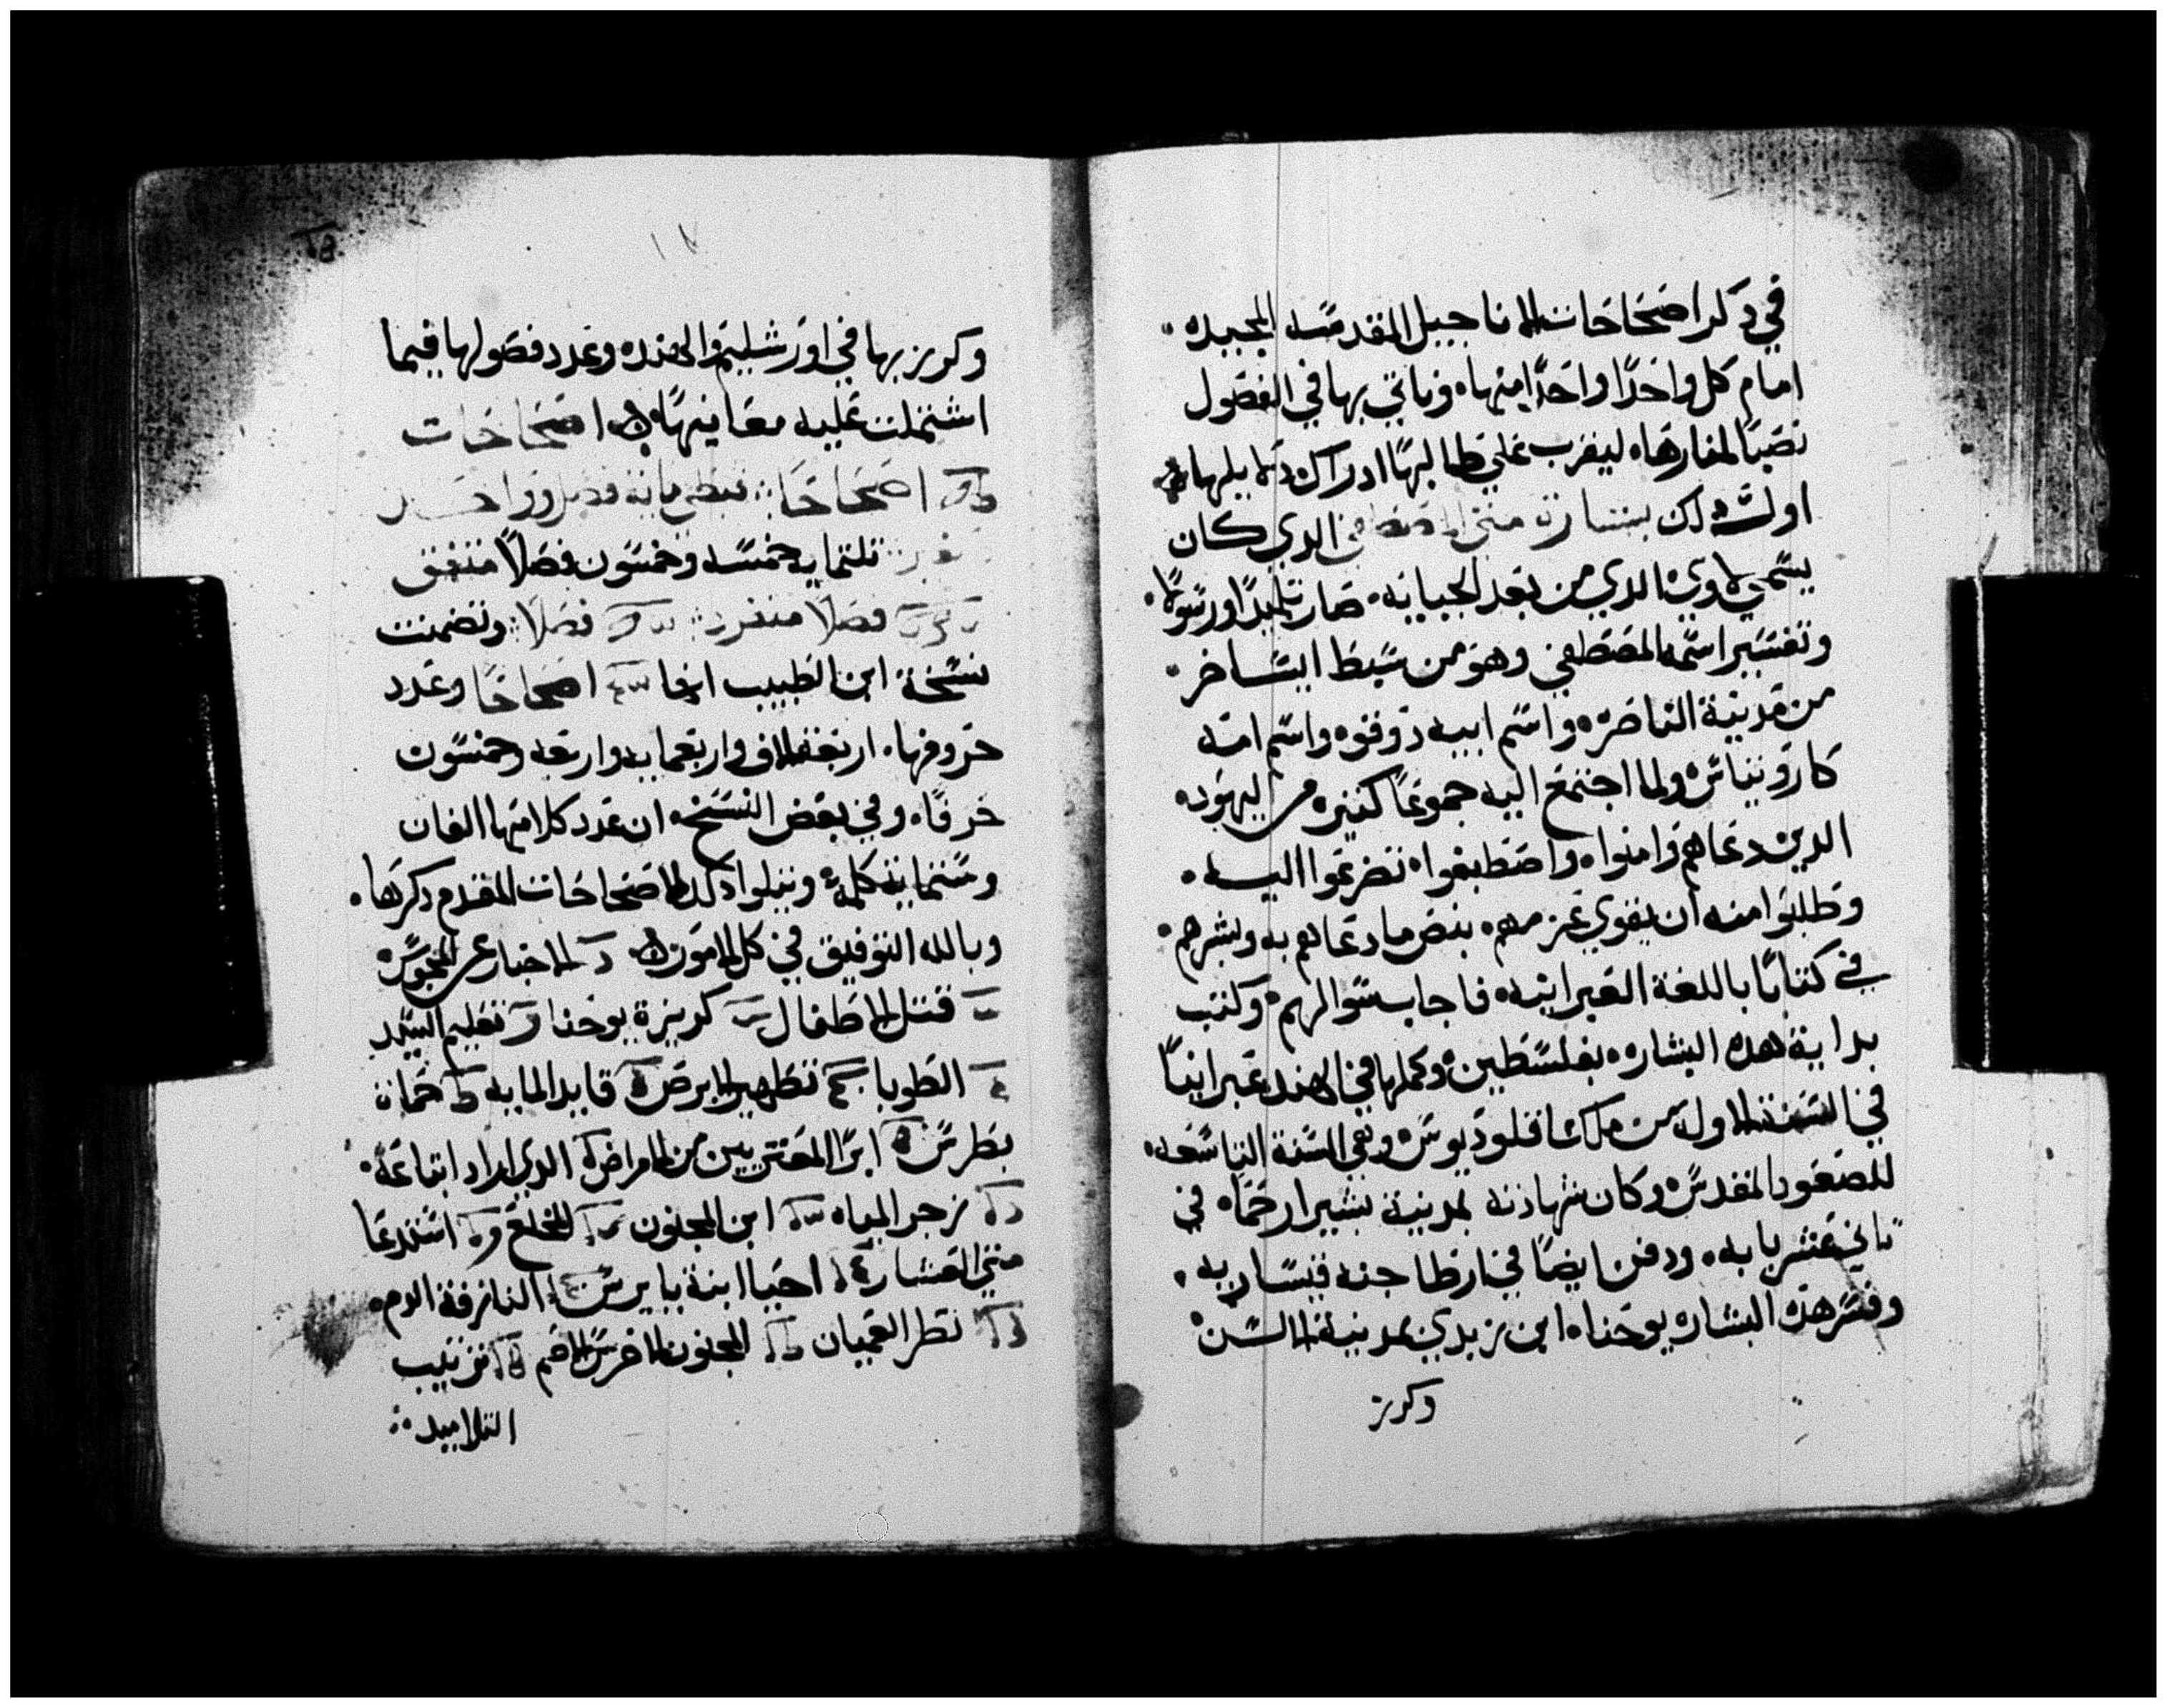 في ذكر اصحاحات الاناجيل المقدسه المجيده
امام كل واحدًا واحدًا منها وناتي بها في الفصول
نصبًا لمقارها ليقرب على طالبها ادراك دلايلها
اول ذلك بشارة متى المصطفى الدي كان
يسمى لاوي الدي من بعد الجبايه صار تلميدًا ورسولا
وتفسير اسمه المصطفى وهو من سبط ايساخر
من مدينة الناصره واسم ابيه دوقوه واسم امه
كاروتياس ولما اجتمع اليه جموعًا كتيره من اليهود
الدين دعاهم وامنوا واصطبغوا تضرعوا اليه
وطلبوا منه ان يقوي عزمهم بنص ما دعاهم به وبشرهم
في كتابًا باللغة العبرانيه فاجاب سوالهم وكتب
بداية هده البشاره بفلسطين وكملها في الهند عبرانيًا
في السنة الاولة من ملك اقلوديوس وهي السنة التاسعه
للصعود المقدس وكان شهادته بمدينة بشير ارحما في
تاني عشر بابه ودفن ايضًا في ارطاجنه قيساريه
وفسر هده البشاره يوحنا ابن زبدي بمدينة
وكرز
وكرز بها في اورشليم والهند وعدد فصولها فيما
اشتملت عليه معاينها اصحاحات
اصحاحًا قبطي مايه فصل وواحد
تلتمايه خمسه وخمسون فصلًا متفق
فصلًا منفرد فصلًا وتضمنت
نسخة ابن الطيب انها اصحاحًا وعدد
حروفها اربعة الاف واربعمايه واربعه وخمسون
حرفًا وفي بعض النسخ ان عدد كلامها الفان
وستماية كلمة ويتلوا دلك الاصحاحات المقدم دكرها
وبالله التوفيق في كل الامور الاخبار عن المجوس
قتل الاطفال كريزة يوحنا تعليم السيد
الطوبا تطهير الابرص قايد المايه حماة
بطرس ابرا المعتريين من الامراض الدي اراد اتباعه
زجر المياه ابن المجنون المخلع استدعا
متى العشار احيا ابنة يايرس النازفة الدم
نظر العميان المجنون الاخرس الاصم ترتيب
التلاميد